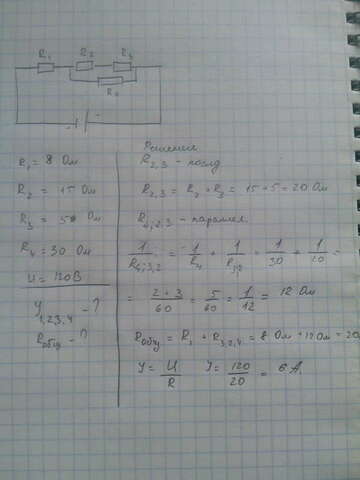 R1 R2 R3
R4
- +
Решение
R1 = 8 Ом
R2 = 15 Ом
R3 = 5 Ом
R4 = 30 Ом
U = 120В
У 1,2,3,4 - ?
Rобщ - ?
R2,3 - послед
R2,3 = R2 + R3 = 15 + 5 = 20 Ом
R4,2,3 - паралел
1/R4,3,2 = 1/R4 + 1/R3,2 = 1/30 + 1/20 =
= 2+3/60 = 5/60 = 1/12 = 12 Ом
Rобщ = R1 + R3,2,4 = 8 Ом + 12 Ом = 20
У = U/R У = 120/20 = 6 А